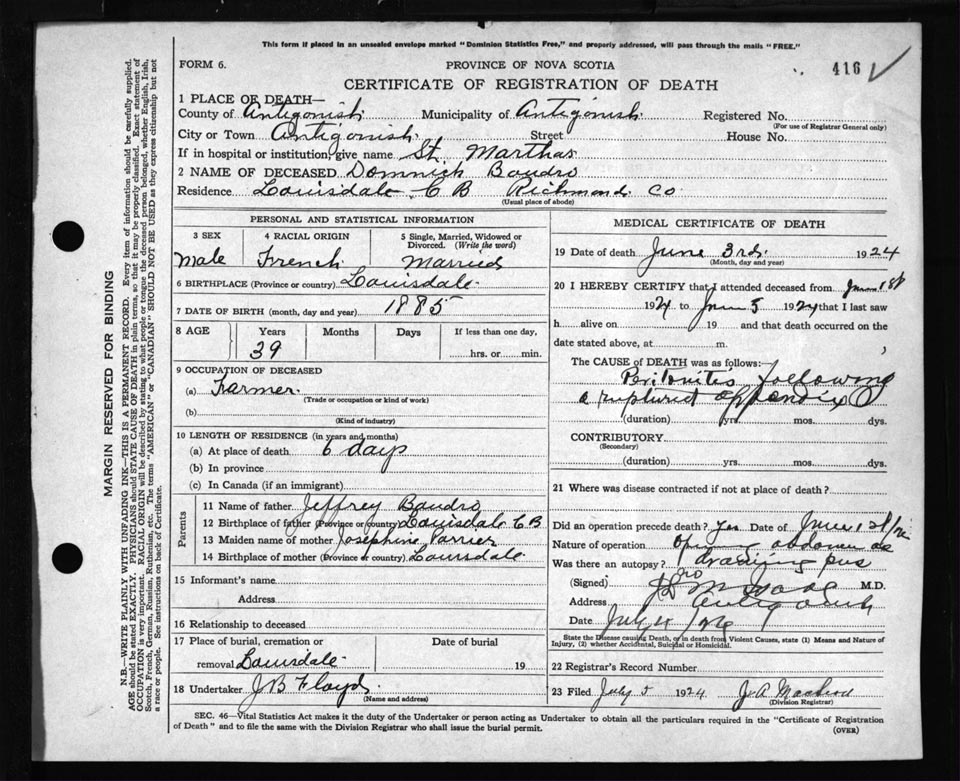 This form if placed in an unsealed envelope marked "Dominion Statistics Free," and properly addressed, will pass through the mails "FREE."
FORM 6.
PROVINCE OF NOVA SCOTIA
416
CERTIFICATE OF REGISTRATION OF DEATH
1 PLACE OF DEATH—
County of Antigonish Municipality of Antigonish Registered No.
(For use of Registrar General only)
City or Town Antigonish Street House No.
If in hospital or institution, give name St. Marthas
2 NAME OF DECEASED Domnick Baudro
Residence Louisdale C B Richmond Co
(Usual place of abode)
PERSONAL AND STATISTICAL INFORMATION
3 SEX 4 RACIAL ORIGIN 5 Single, Married, Widowed or Divorced. (Write the word)
Male French Married
6 BIRTHPLACE (Province or country) Louisdale
7 DATE OF BIRTH (month, day and year) 1885
8 AGE Years Months Days If less than one day,
39 hrs. or min.
9 OCCUPATION OF DECEASED
(a) Farmer
(Trade or occupation or kind of work)
(b)
(Kind of industry)
10 LENGTH OF RESIDENCE (in years and months)
(a) At place of death 6 days
(b) In province
(c) In Canada (if an immigrant)
Parents
11 Name of father Jeffrey Baudro
12 Birthplace of father (Province or country) Louisdale C B
13 Maiden name of mother Josephine
14 Birthplace of mother (Province or country) Louisdale
15 Informant's name
Address
16 Relationship to deceased
17 Place of burial, cremation or Date of burial
removal Louisdale 19
18 Undertaker J B Floyd
(Name and address)
MEDICAL CERTIFICATE OF DEATH
19 Date of death June 3rd 1924
(Month, day and year)
20 I HEREBY CERTIFY that I attended deceased from June 1st
1924 to June 1924 that I last saw
h alive on 19 and that death occurred on
date stated above, at m.
The CAUSE OF DEATH was as follows:
Peritonites following
a ruptured appendix
(duration) yrs. mos. dys.
CONTRIBUTORY
(Secondary)
(duration) yrs. mos. dys.
21 Where was disease contracted if not at place of death?
Did an operation precede death? yes Date of June 1st
Nature of operation Opening abdomen
Was there an autopsy? draining pus
(Signed) M.D.
Address Antigonish
Date July
State the Disease causing Death, or in death from Violent Causes, state (1) Means and Nature of
Injury, (2) whether Accidental, Suicidal or Homicidal.
22 Registrar's Record Number
23 Filed July 5 1924 J. A. Macleod
(Division Registrar)
SEC. 46—Vital Statistics Act makes it the duty of the Undertaker or person acting as Undertaker to obtain all the particulars required in the "Certificate of Registration
of Death" and to file the same with the Division Registrar who shall issue the burial permit.
(OVER)
MARGIN RESERVED FOR BINDING
N.B.—WRITE PLAINLY WITH UNFADING INK—THIS IS A PERMANENT RECORD. Every item of information should be carefully supplied.
AGE should be stated EXACTLY. PHYSICIANS should STATE CAUSE OF DEATH in plain terms, so that it may be properly classified. Exact statement of
OCCUPATION is very important. RACIAL ORIGIN will be described by stating to what people or tongue the deceased person belonged, whether English, Irish,
Scotch, French, German, Russian, Ruthenian, etc. The terms "AMERICAN" or "CANADIAN" SHOULD NOT BE USED as they express citizenship but not
a race or people. See instructions on back of Certificate.